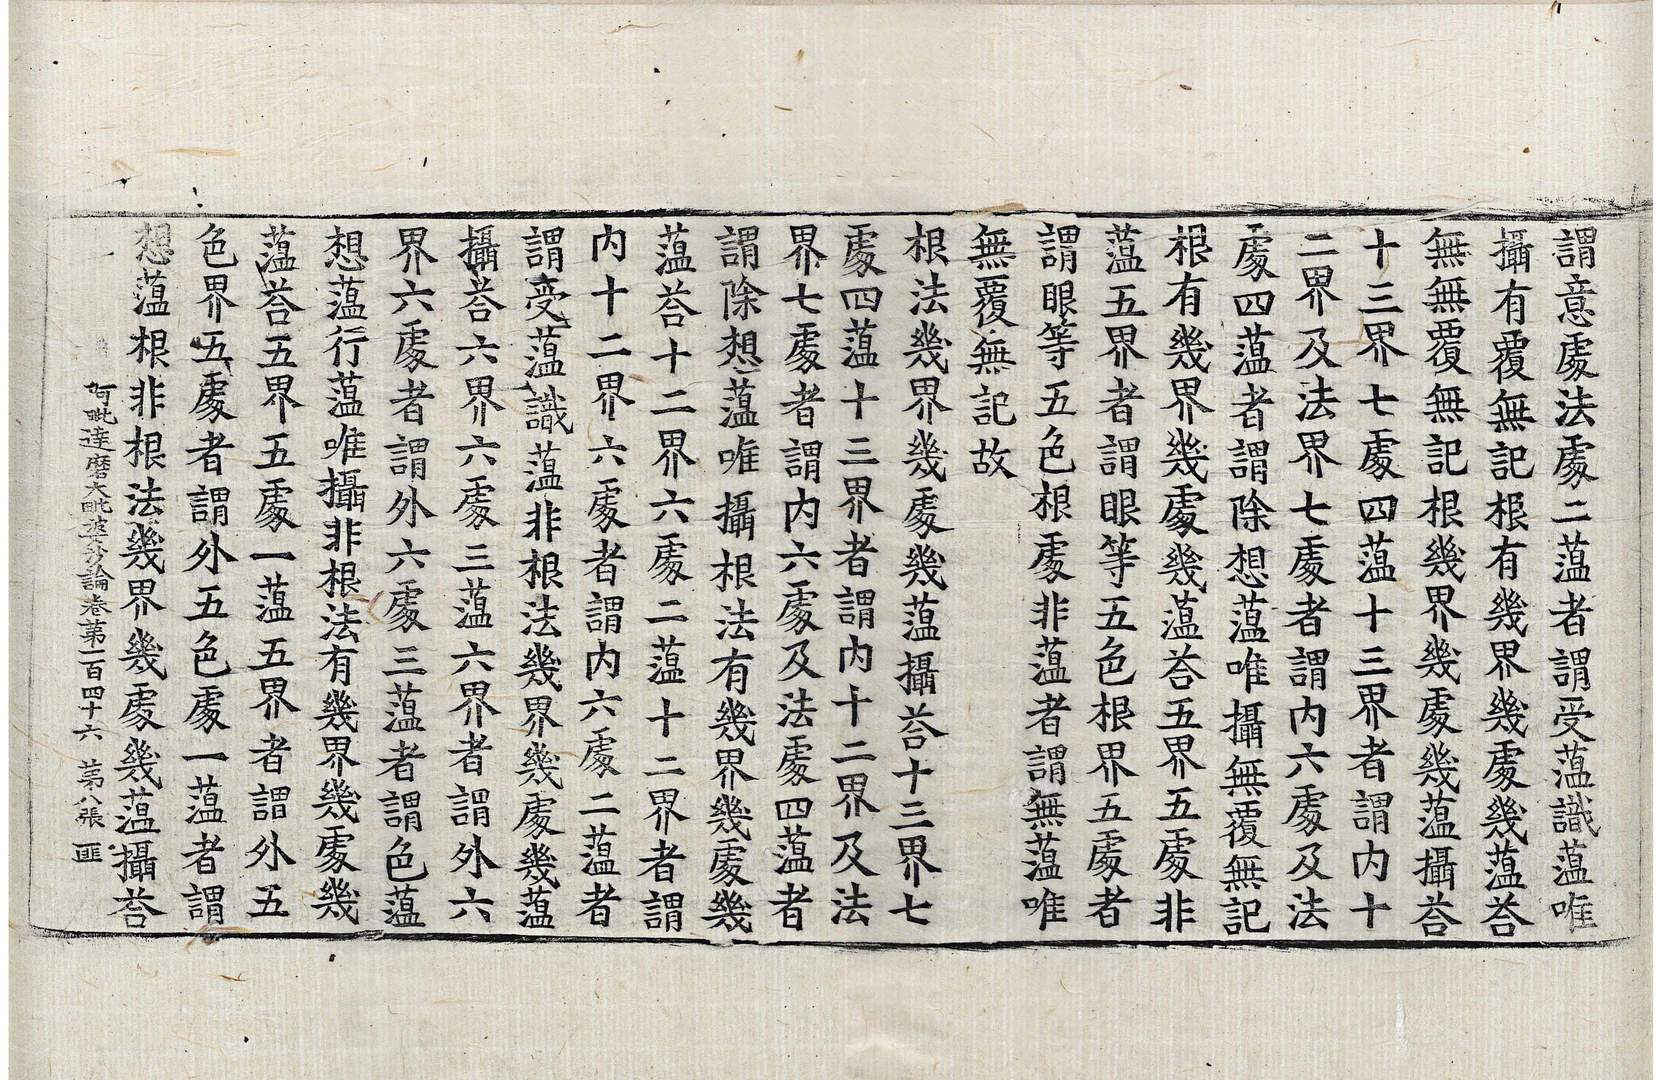 謂意處法處二蕰者謂受蕰識蕰唯
攝有覆無記根有幾界幾處幾蕰荅
無無覆無記根幾界幾處幾蕰攝荅
十三界七處四蕰十三界者謂内十
二界及法界七處者謂内六處及法
處四蕰者謂除想蕰唯攝無覆無記
根有幾界幾處幾蕰荅五界五處非
蕰五界者謂眼等五色根界五處者
謂眼等五色根處非蕰者謂無蕰唯
無覆無記故
根法幾界幾處幾蕰攝荅十三界七
處四蕰十三界者謂内十二界及法
界七處者謂内六處及法處四蕰者
謂除想蕰唯攝根法有幾界幾處幾
蕰荅十二界六處二蕰十二界者謂
内十二界六處者謂内六處二蕰者
謂受蕰識蕰非根法幾界幾處幾蕰
攝荅六界六處三蕰六界者謂外六
界六處者謂外六處三蕰者謂色蕰
想蕰行蕰唯攝非根法有幾界幾處幾
蕰荅五界五處一蕰五界者謂外五
色界五處者謂外五色處一蕰者謂
想蕰根非根法幾界幾處幾蕰攝荅
阿毗達磨大毗婆沙論卷第一百四十六 第八張 匪